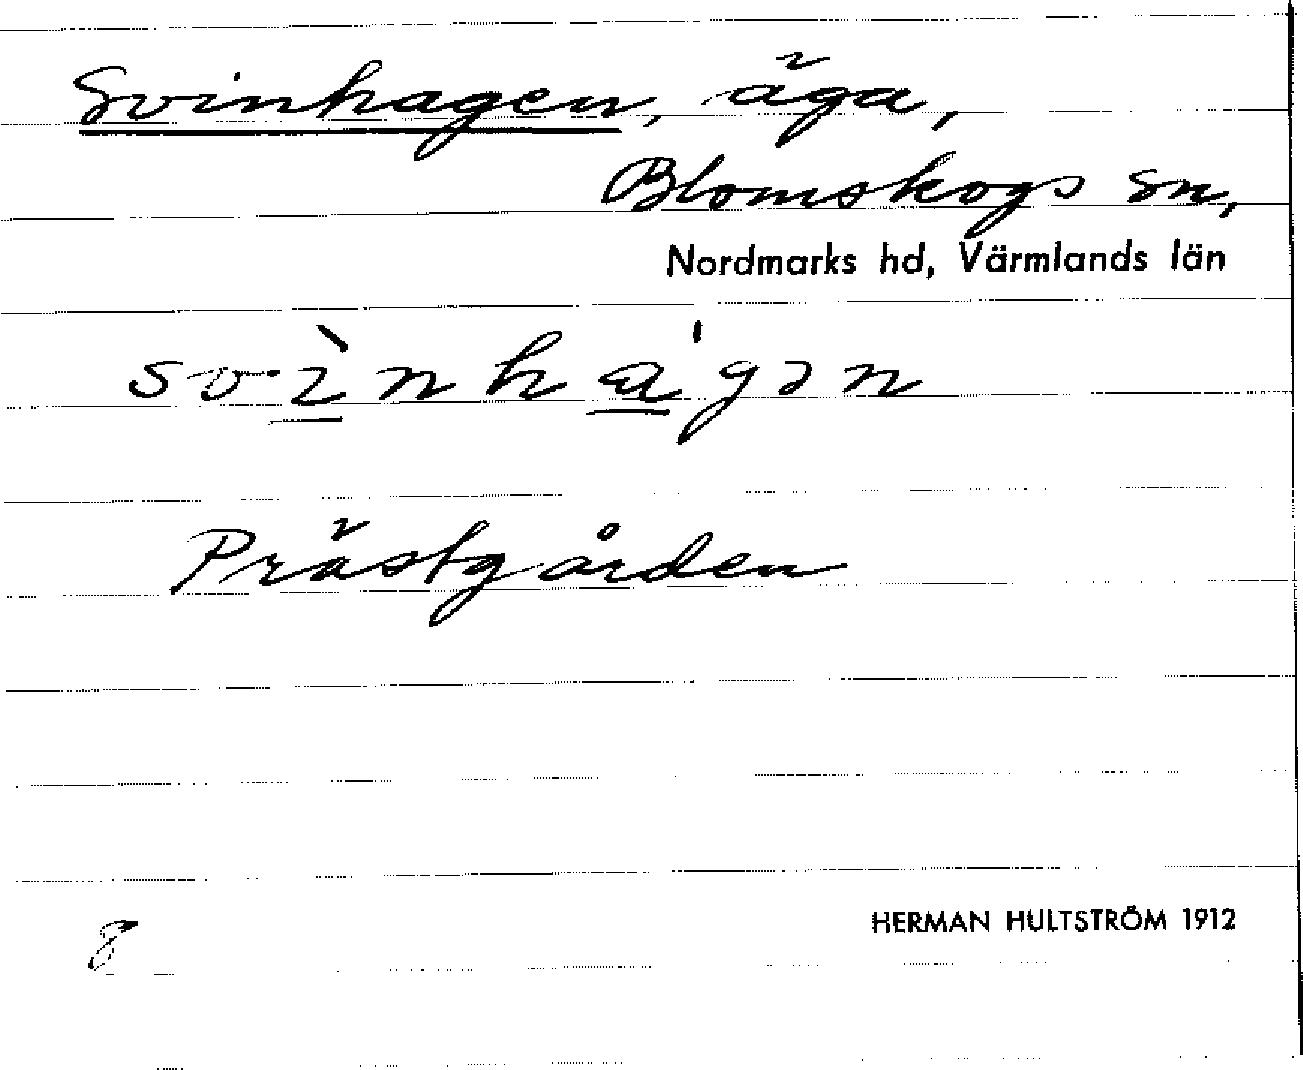 Svinhagen, äga,
Blomskogs sn,
Nordmarks hd, Värmlands län
svì̲nhá̲gən
Prästgården
HERMAN HULTSTRÖM 1912
8